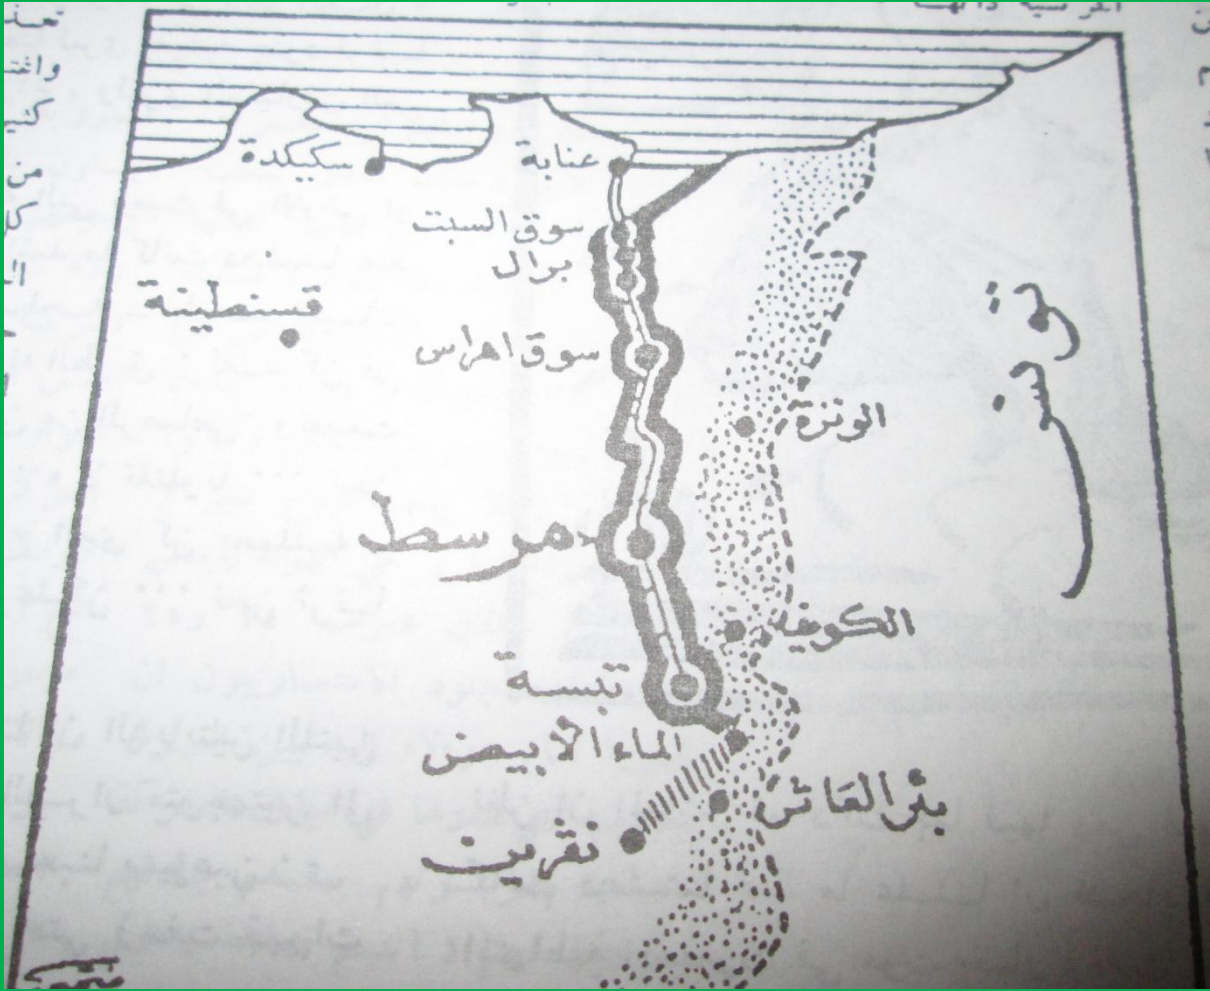 سكيكدة
عنابة
سوق السبت
برال
قسنطينة
سوق اهراس
تونس
الونزة
مرسط
الكويف
تبسة
الماء الأبيض
بئر العاتر
نقرين